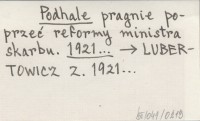 Podhale pragnie po-
przeć reformy ministra
skarbu. 1921... → LUBER-
TOWICZ Z. 1921...